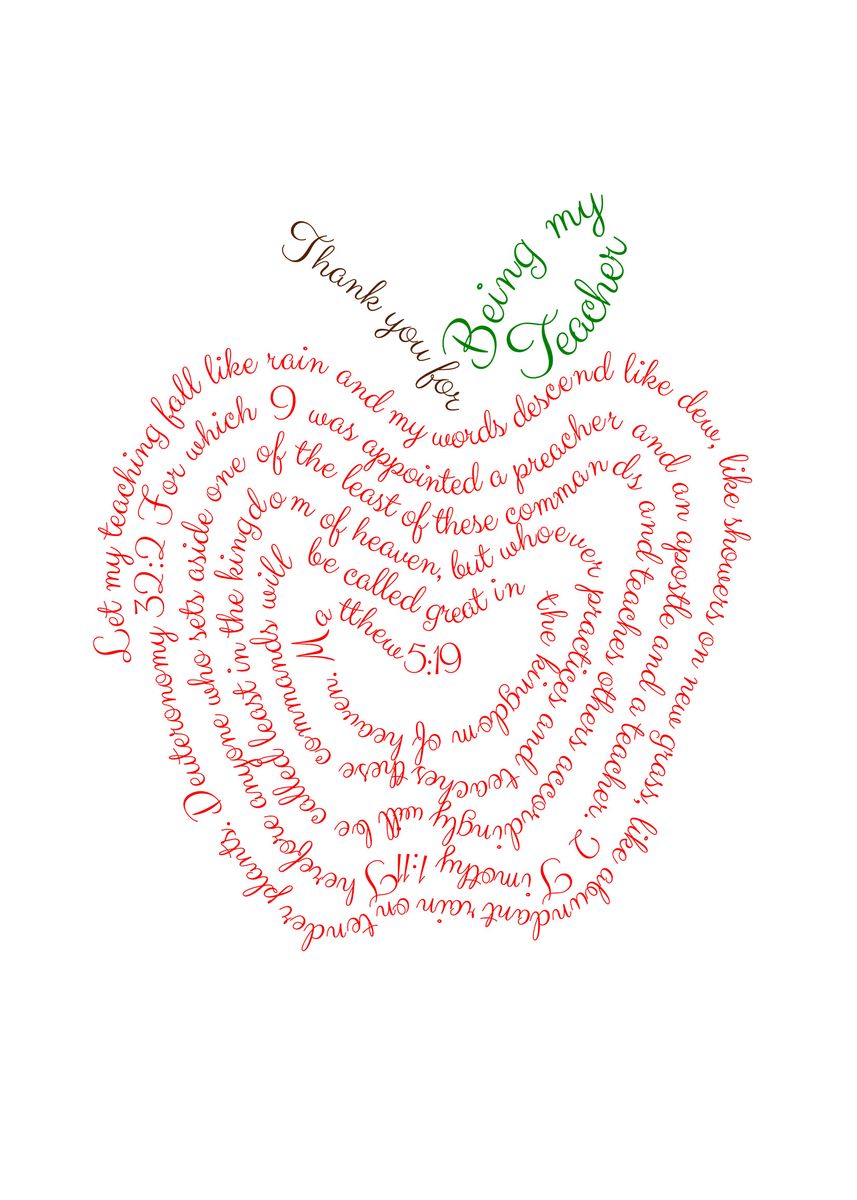 Thank you for
Being my
Teacher
Let my teaching fall like rain and my words descend like dew, like showers on new grass, like abundant rain on tender plants. Deuteronomy 32:2 For which I was appointed a preacher and an apostle and a teacher. 2 Timothy 1:11 Therefore anyone who sets aside one of the least of these commands and teaches others accordingly will be called least in the kingdom of heaven, but whoever practices and teaches these commands will be called great in the kingdom of heaven. Matthew 5:19